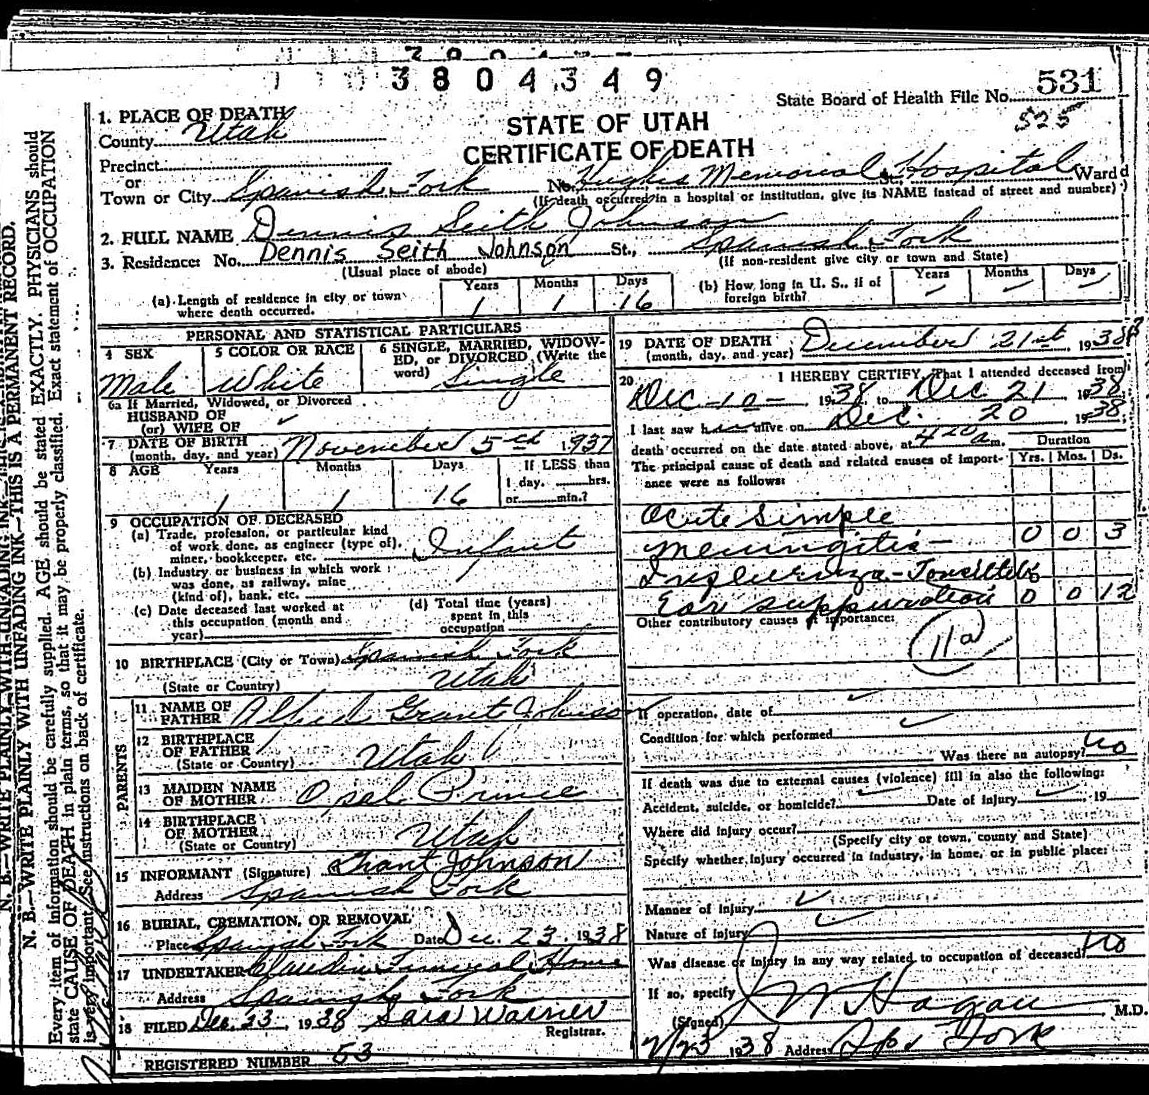 3804349
State Board of Health File No. 531
535
1. PLACE OF DEATH
County Utah
STATE OF UTAH
CERTIFICATE OF DEATH
Precinct
or
Town or City Spanish Fork No. Hughes Memorial St., Hospital Ward
(If death occurred in a hospital or institution, give its NAME instead of street and number)
2. FULL NAME Dennis Seith Johnson
3. Residence: No. Dennis Seith Johnson St., Spanish Fork
(Usual place of abode) (If non-resident give city or town and State)
(a) Length of residence in city or town where death occurred. Years 1 Months 1 Days 16
(b) How long in U. S., if of foreign birth? Years – Months – Days –
PERSONAL AND STATISTICAL PARTICULARS
4 SEX Male
5 COLOR OR RACE White
6 SINGLE, MARRIED, WIDOWED, or DIVORCED (Write the word) Single
6a If Married, Widowed, or Divorced
HUSBAND OF
(or) WIFE OF
7 DATE OF BIRTH (month, day, and year) November 5 1937
8 AGE Years 1 Months 1 Days 16 If LESS than 1 day, hrs. or min.?
9 OCCUPATION OF DECEASED
(a) Trade, profession, or particular kind of work done, as engineer (type of), miner, bookkeeper, etc. Infant
(b) Industry or business in which work was done, as railway, mine (kind of), bank, etc.
(c) Date deceased last worked at this occupation (month and year)
(d) Total time (years) spent in this occupation
10 BIRTHPLACE (City or Town) Spanish Fork
(State or Country) Utah
PARENTS
11 NAME OF FATHER Alfred Grant Johnson
12 BIRTHPLACE OF FATHER (State or Country) Utah
13 MAIDEN NAME OF MOTHER Opal Prince
14 BIRTHPLACE OF MOTHER (State or Country) Utah
15 INFORMANT (Signature) Grant Johnson
Address Spanish Fork
16 BURIAL, CREMATION, OR REMOVAL
Place Spanish Fork Date Dec. 23 1938
17 UNDERTAKER Claudin Funeral Home
Address Spanish Fork
18 FILED Dec. 23 1938 Sara Warner
Registrar.
REGISTERED NUMBER 53
19 DATE OF DEATH (month, day, and year) December 21st 1938
20 I HEREBY CERTIFY, That I attended deceased from
Dec-10- 1938 to Dec 21 1938
I last saw him alive on Dec. 20 1938
death occurred on the date stated above, at 4 20 a m.
Duration
The principal cause of death and related causes of importance were as follows: Yrs. Mos. Ds.
Acute Simple
Meningitis - 0 0 3
Influenza - Tonsillitis
Ear suppuration 0 0 12
Other contributory causes of importance:
11a
If operation, date of
Condition for which performed
Was there an autopsy? No
If death was due to external causes (violence) fill in also the following:
Accident, suicide, or homicide? Date of injury , 19
Where did injury occur?
(Specify city or town, county and State)
Specify whether injury occurred in industry, in home, or in public place:
Manner of Injury
Nature of Injury
Was disease or injury in any way related to occupation of deceased? No
If so, specify
(Signed) J W Hagan M.D.
1938 Address Sps Fork
N. B.—WRITE PLAINLY WITH UNFADING INK—THIS IS A PERMANENT RECORD.
Every item of information should be carefully supplied. AGE should be stated EXACTLY. PHYSICIANS should
state CAUSE OF DEATH in plain terms, so that it may be properly classified. Exact statement of OCCUPATION
is very important. See instructions on back of certificate.